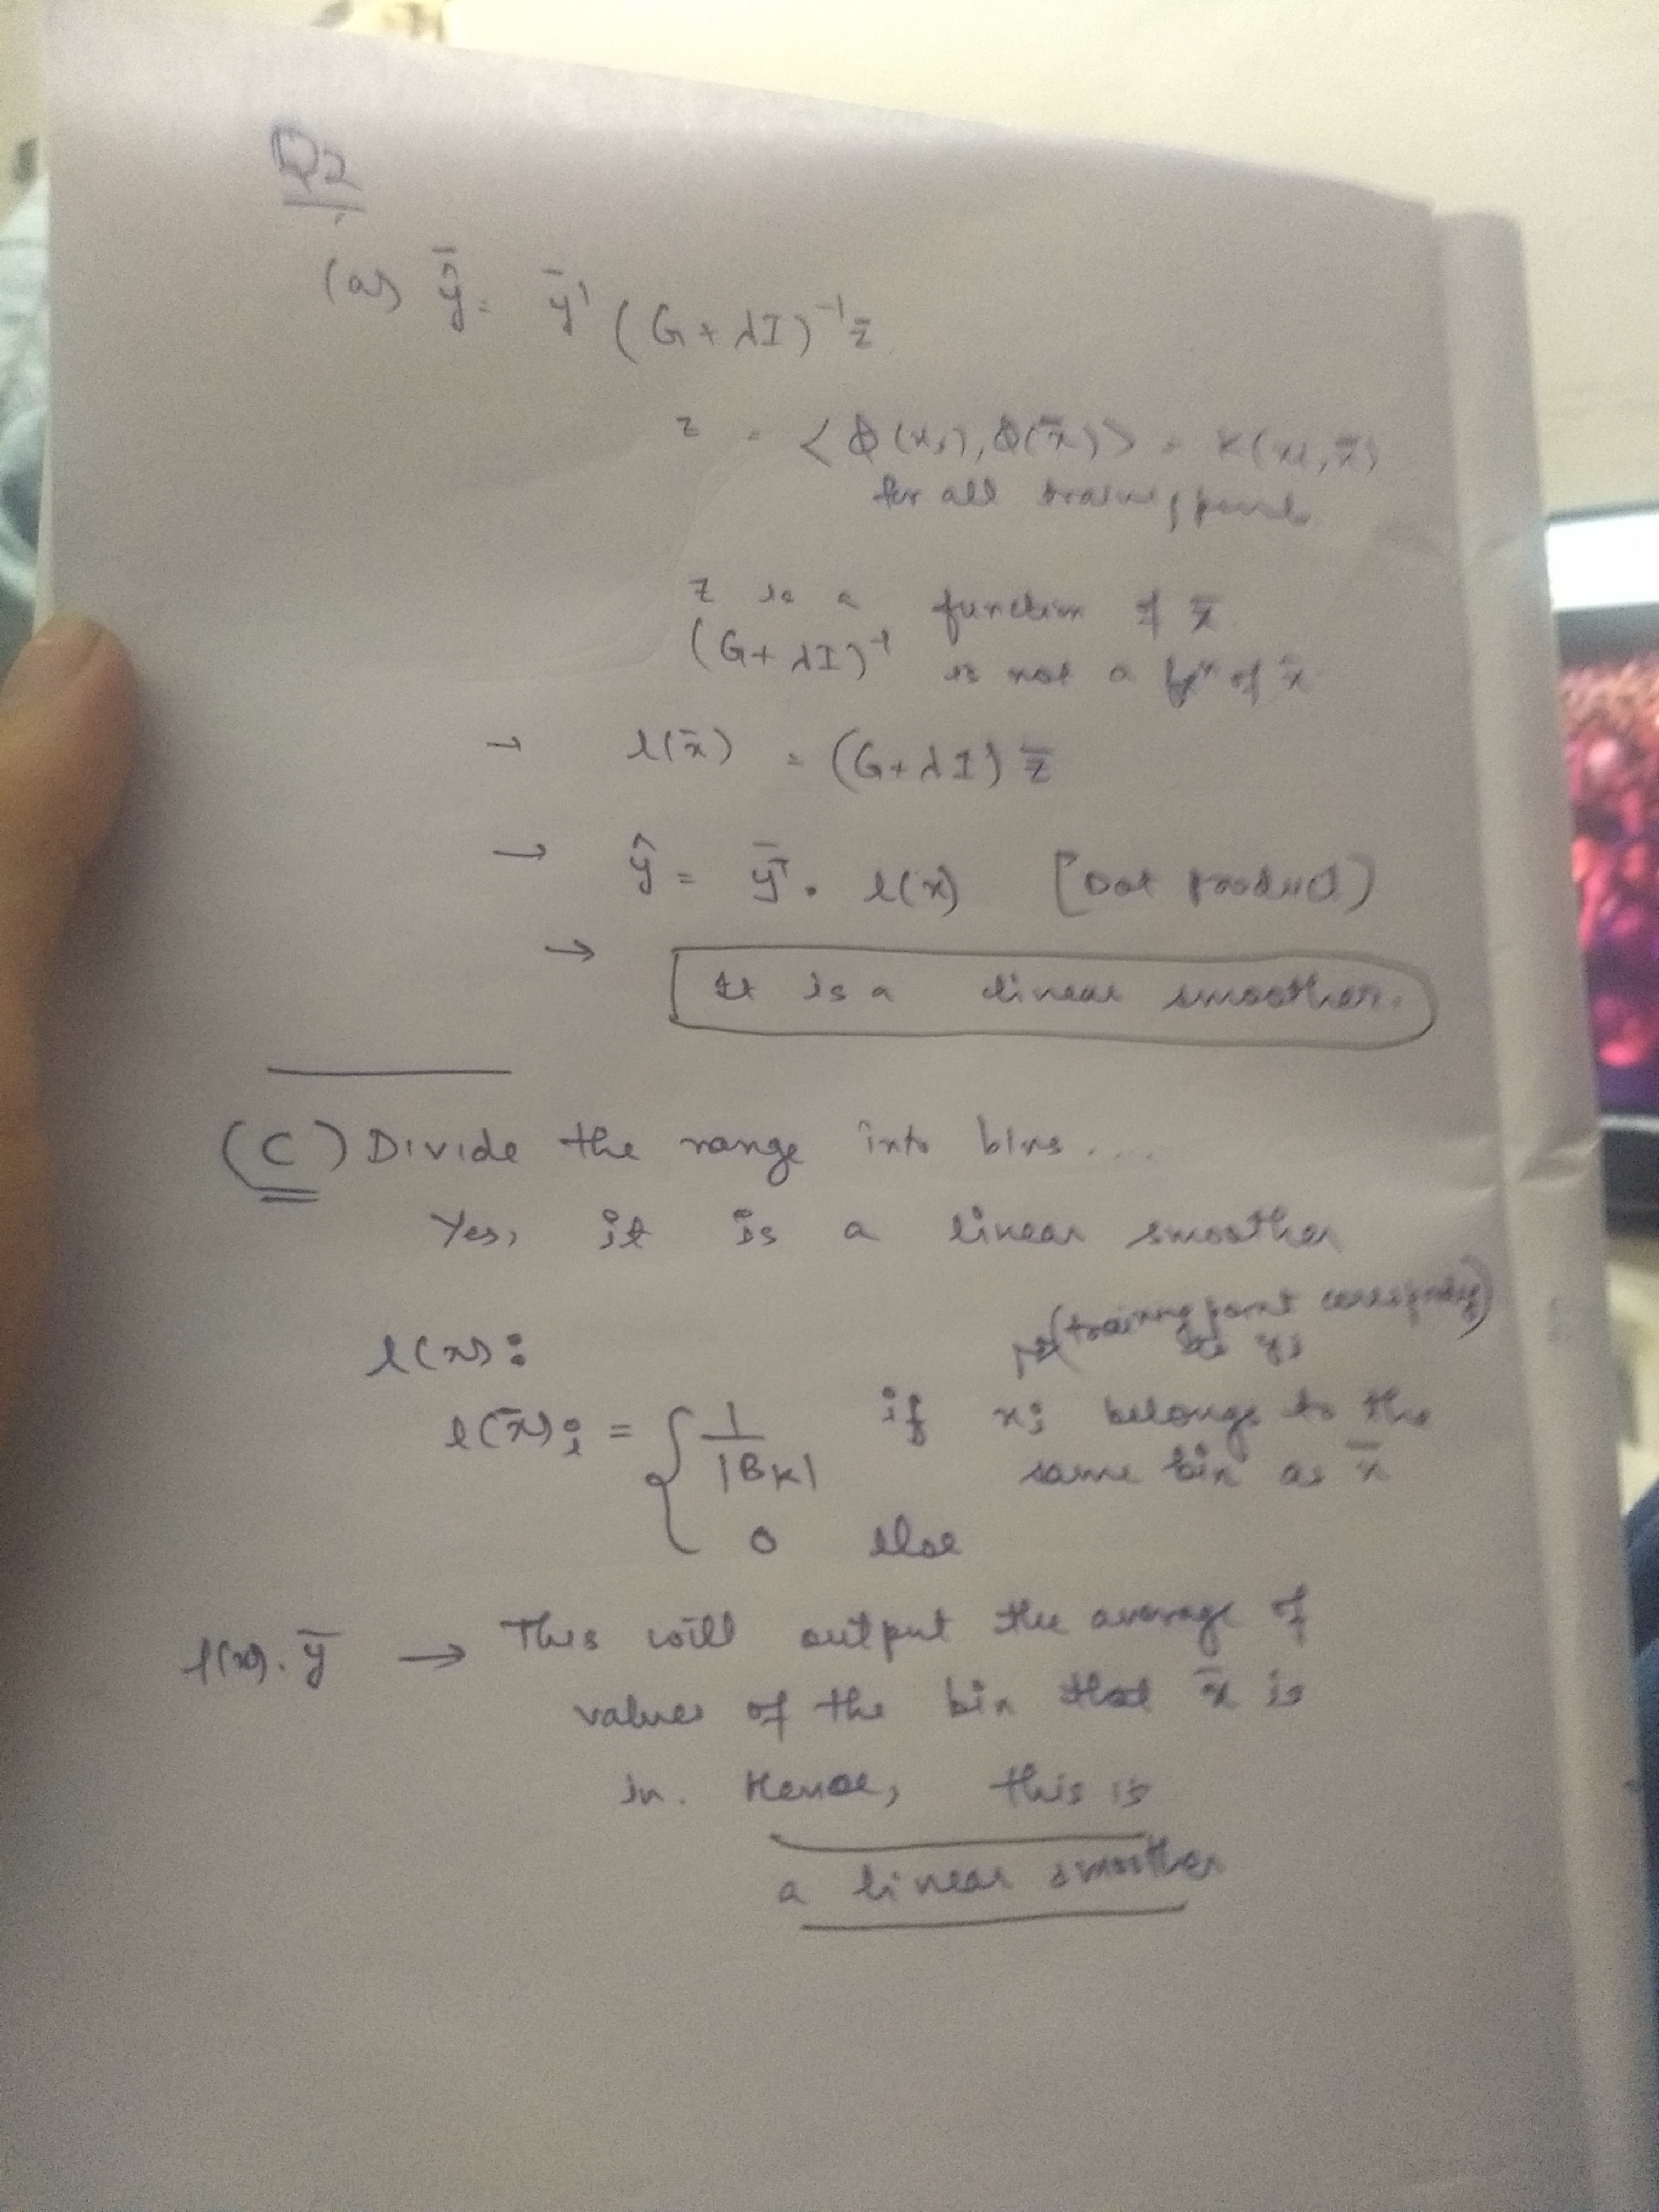 Q2
(a) ȳ̂ = ȳ' (G + λI)⁻¹ z̄
z = <Φ(xi), Φ(x̄)> = K(xi, x̄)
for all training points
z is a function of x̄
(G + λI)⁻¹ is not a fxⁿ of x̄
→ l(x̄) = (G + λI) z̄
→ ŷ = ȳᵀ. l(x) [Dot product]
→ It is a linear smoother.
(C) Divide the range into bins ....
Yes, it is a linear smoother
(training point corresponding
to yi)
l(x):
l(x̄)i = { 1/|BK| if xi belongs to the
same bin as x̄
0 else
l(x). ȳ → This will output the average of
values of the bin that x̄ is
in. Hence, this is
a linear smoother